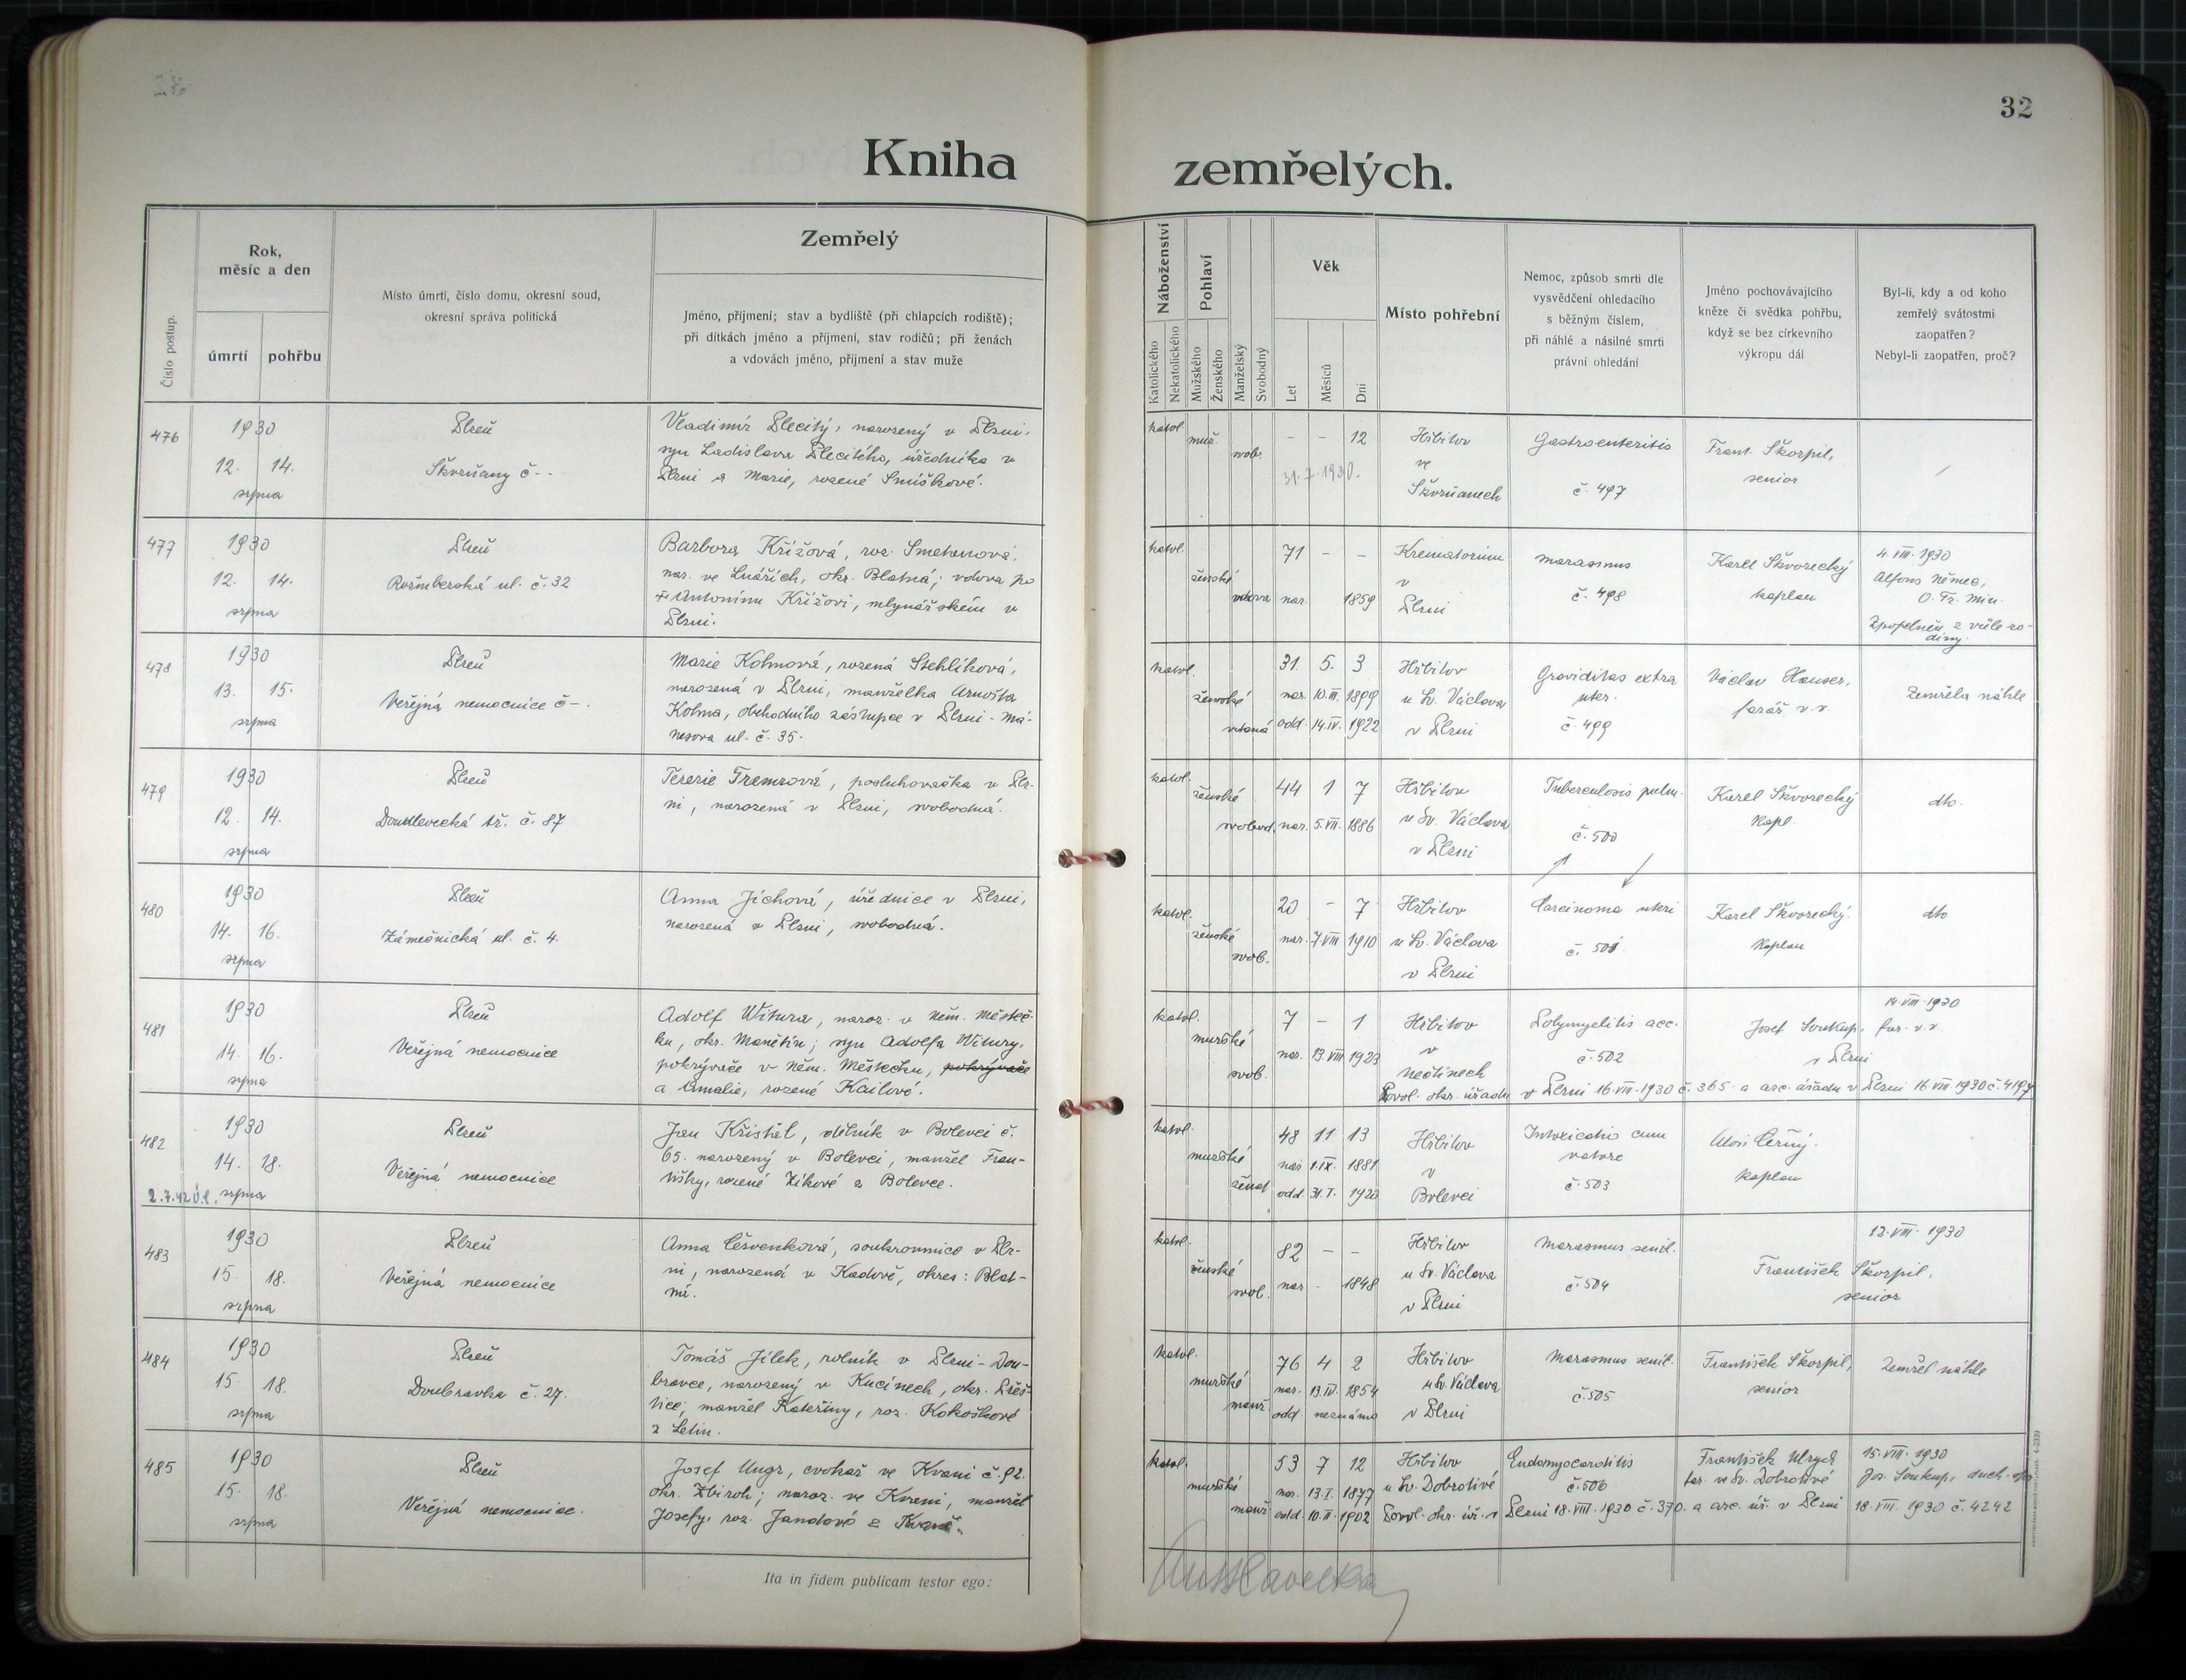 32
Kniha zemřelých.
Číslo postup.
Rok,
měsíc a den
úmrtí
pohřbu
Místo úmrtí, číslo domu, okresní soud,
okresní správa politická
Zemřelý
Jméno, příjmení; stav a bydliště (při chlapcích rodiště);
při dítkách jméno a příjmení, stav rodičů; při ženách
a vdovách jméno, příjmení a stav muže
Náboženství
Katolického
Nekatolického
Pohlaví
Mužského
Ženského
Manželský
Svobodný
Věk
Let
Měsíců
Dní
Místo pohřební
Nemoc, způsob smrti dle
vysvědčení ohledacího
s běžným číslem,
při náhlé a násilné smrti
právní ohledání
Jméno pochovávajícího
kněze či svědka pohřbu,
když se bez církevního
výkropu dál
Byl-li, kdy a od koho
zemřelý svátostmi
zaopatřen?
Nebyl-li zaopatřen, proč?
476
1930
12. 14.
srpna
Plzeň
Škvrňany č --
Vladimír Plecitý, narozený v Plzni,
syn Ladislava Plecitého, úředníka v
Plzni a Marie, rozené Smíškové.
katol.
muž.
svob.
- - 12
31.7.1930.
Hřbitov
ve
Škvrňanech
Gastroenteritis
č. 497
Frant. Škorpil,
senior
477
1930
12. 14.
srpna
Plzeň
Rožmberská ul. č. 32
Barbora Křížová, roz. Smetanová,
nar. ve Lnářích, okr. Blatná; vdova po
† Antonínu Křížovi, mlynářském v
Plzni.
katol.
ženské
vdova
71 - -
nar. 1859
Krematorium
v
Plzni
marasmus
č. 498
Karel Škvorecký
kaplan
4. VIII. 1930
Alfons Němec,
O. Fr. Min.
Zpopelněn z vůle ro-
diny.
478
1930
13. 15.
srpna
Plzeň
Veřejná nemocnice č -.
Marie Kohnová, rozená Stehlíková,
narozená v Plzni, manželka Arnošta
Kohna, obchodního zástupce v Plzni - Má-
nesova ul. č. 35.
katol.
ženské
vdaná
31. 5. 3
nar. 10. III. 1899
odd. 14. IV. 1922
Hřbitov
u Sv. Václava
v Plzni
Graviditas extra
uter.
č. 499
Václav Hauser,
farář v.v.
Zemřela náhle
479
1930
12. 14.
srpna
Plzeň
Doudlevecká tř. č. 87
Terezie Tremrová, posluhovačka v Plz-
ni, narozená v Plzni, svobodná.
katol.
ženské
svobod.
44 1 7
nar. 5. VII. 1886
Hřbitov
u Sv. Václava
v Plzni
Tuberculosis pulm.
č. 500
Karel Škvorecký
kapl.
dto.
480
1930
14. 16.
srpna
Plzeň
Zámečnická ul. č. 4.
Anna Jíchová, úřednice v Plzni,
narozená v Plzni, svobodná.
katol.
ženské
svob.
20 - 7
nar. 7. VIII 1910
Hřbitov
u Sv. Václava
v Plzni
Carcinoma uteri
č. 501
Karel Škvorecký.
kaplan
dto
481
1930
14. 16.
srpna
Plzeň
Veřejná nemocnice
Adolf Witura, naroz. v Něm. Městeč-
ku, okr. Manětín; syn Adolfa Witury,
pokrývače v Něm. Městečku, pokrývače
a Amalie, rozené Kailové.
katol.
mužské
svob.
7 - 1
nar. 13 VIII 1923
Hřbitov
v
Nečtinech
Polymyelitis acc.
č. 502
14. VIII. 1930
Josef Soukup, far. v.v.
v Plzni
Povol. okr. úřadu v Plzni 16. VIII. 1930 č. 365 a arc. úřadu v Plzni 16. VIII. 1930 č. 4197
482
1930
14. 18.
2.7.42 Ol. srpna
Plzeň
Veřejná nemocnice
Jan Křistel, dělník v Bolevci č.
65. narozený v Bolevci, manžel Fran-
tišky, rozené Zikové z Bolevce.
katol.
mužské
ženat
48 11 13
nar. 1. IX. 1881
odd. 31. I. 1920
Hřbitov
v
Bolevci
Intoxicatio cum
č. 503
Alois Černý.
kaplan
483
1930
15. 18.
srpna
Plzeň
Veřejná nemocnice
Anna Červenková, soukromnice v Plz-
ni, narozená v Kadově, okres: Blat-
ná.
katol.
ženské
svob.
82 - -
nar. - 1848
Hřbitov
u Sv. Václava
v Plzni
Marasmus senil.
č. 504
13. VIII. 1930
František Škorpil,
senior
484
1930
15. 18.
srpna
Plzeň
Doubravka č. 27.
Tomáš Jílek, rolník v Plzni - Dou-
bravce, narozený v Kucínech, okr. Přeš-
tice; manžel Kateřiny, roz. Kokoškové
z Letin.
katol.
mužské
manž.
76 4 2
nar. 13. IV. 1854
odd. neznámo
Hřbitov
u Sv. Václava
v Plzni
Marasmus senil.
č. 505
František Škorpil,
senior
Zemřel náhle
485
1930
15. 18.
srpna
Plzeň
Veřejná nemocnice.
Josef Ungr, cvokař ve Kvani č. 92.
okr. Zbiroh; naroz. ve Kvani, manžel
Josefy, roz. Jandové z
katol.
mužské
manž.
53 7 12
nar. 13. I. 1877
odd. 10. II. 1902
Hřbitov
u Sv. Dobrotivé
Endomyocarditis
č. 506
František Ulrych
far. ve Sv. Dobrotivé
15. VIII. 1930
Jos. Soukup, duch.
Povol. okr. úř. v Plzni 18. VIII. 1930 č. 370. a arc. úř. v Plzni 18. VIII. 1930 č. 4242
Ita in fidem publicam testor ego: